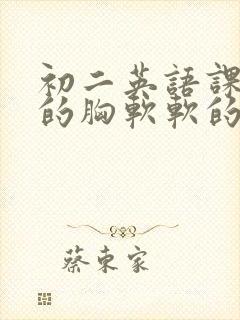 初二英語課
的胸軟軟的
蔡東家